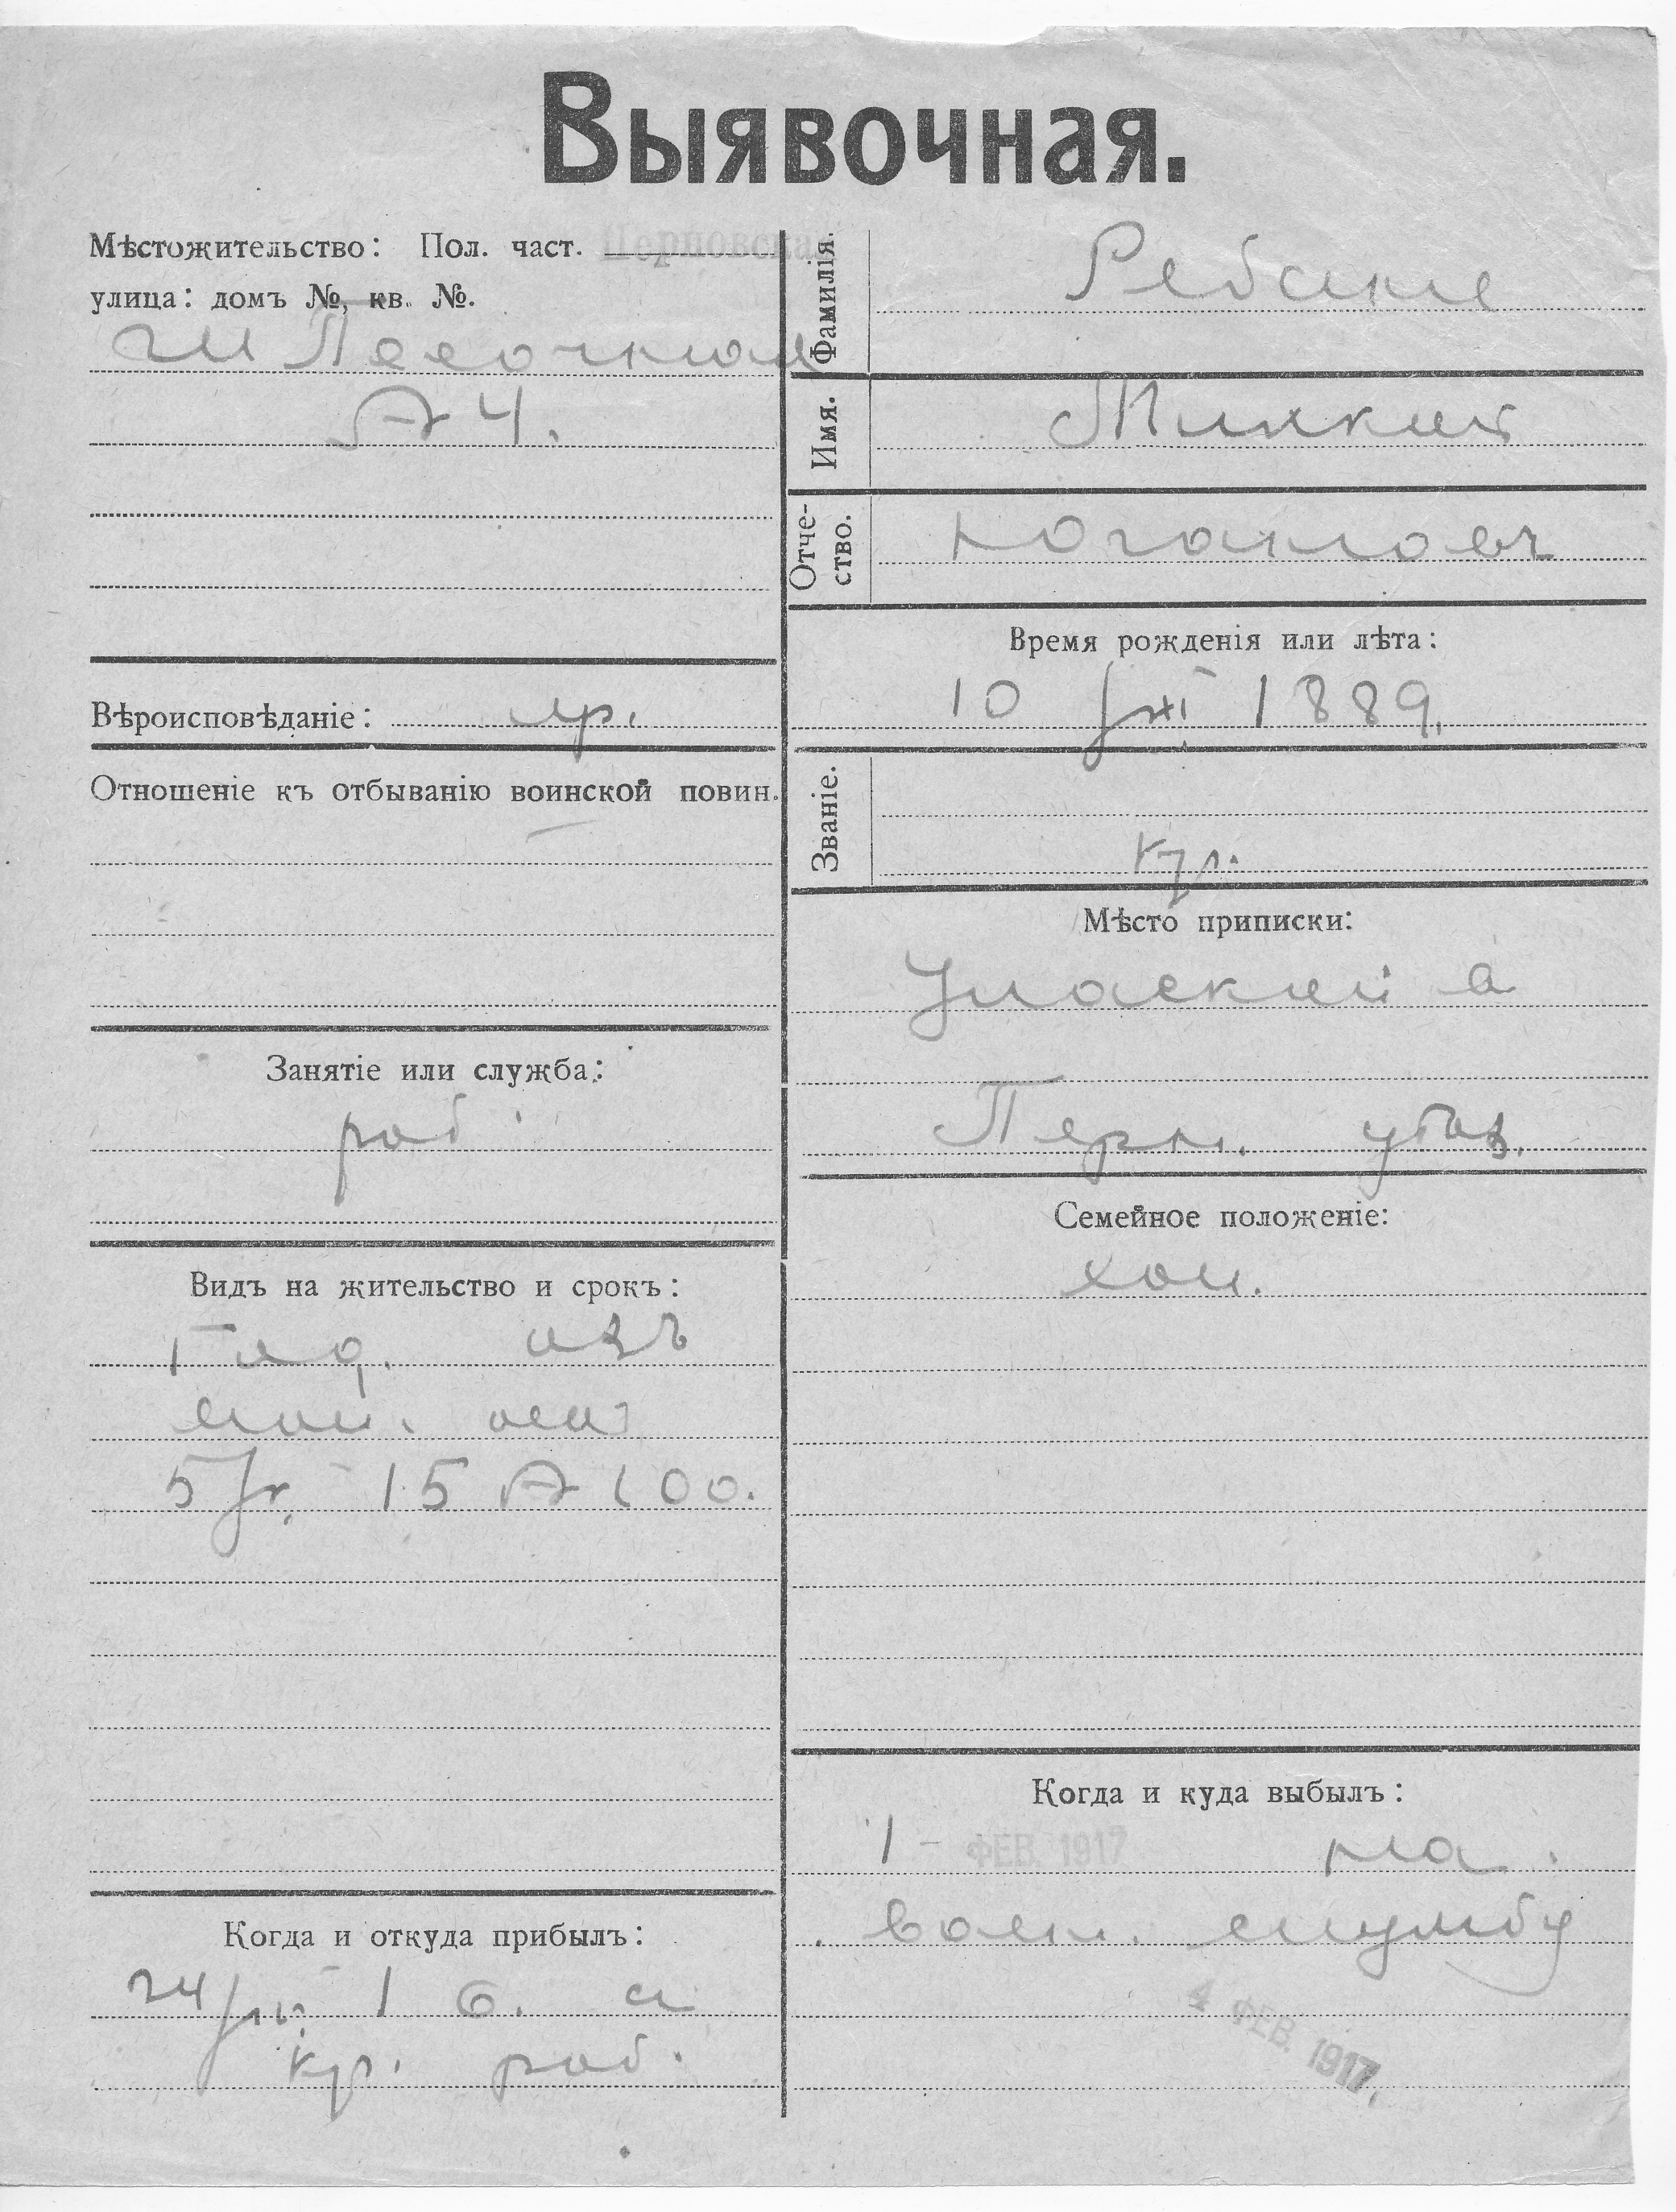 Выявочная.
Мѣстожительство: Пол. част. Перновская
улица: домъ №, кв. №.
Песочная
№ 4.
Вѣроисповѣданіе: пр.
Отношеніе къ отбыванію воинской повин.
Занятіе или служба:
раб.
Видъ на жительство и срокъ:
изъ
15 № 100.
Когда и откуда прибылъ:
24 16. с
кр. раб.
Фамилія. Ребане
Имя. Михкель
Отче-
ство. Югановъ
Время рожденія или лѣта:
10 XI 1889.
Званіе.
кр.
Мѣсто приписки:
Перн. уѣз.
Семейное положеніе:
хол.
Когда и куда выбылъ:
1 - ФЕВ. 1917 на
воен. службу
4 ФЕВ. 1917.